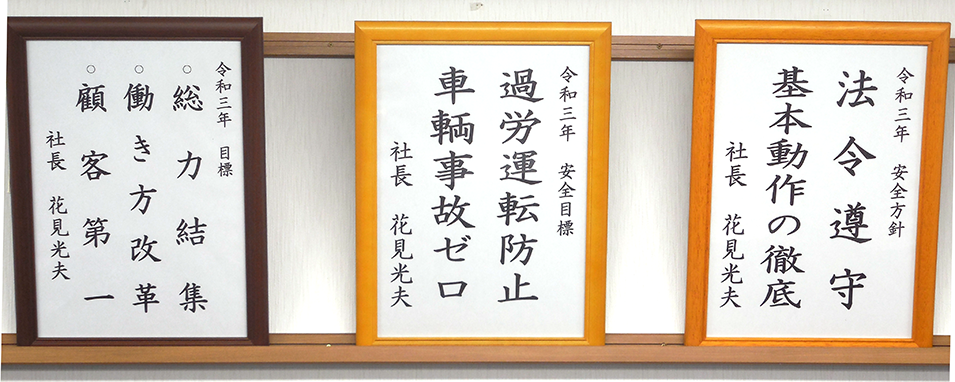 令和三年 安全方針
法令遵守
基本動作の徹底
社長 花見光夫
令和三年 安全目標
過労運転防止
車輌事故ゼロ
社長 花見光夫
令和三年 目標
○総力結集
○働き方改革
○顧客第一
社長 花見光夫